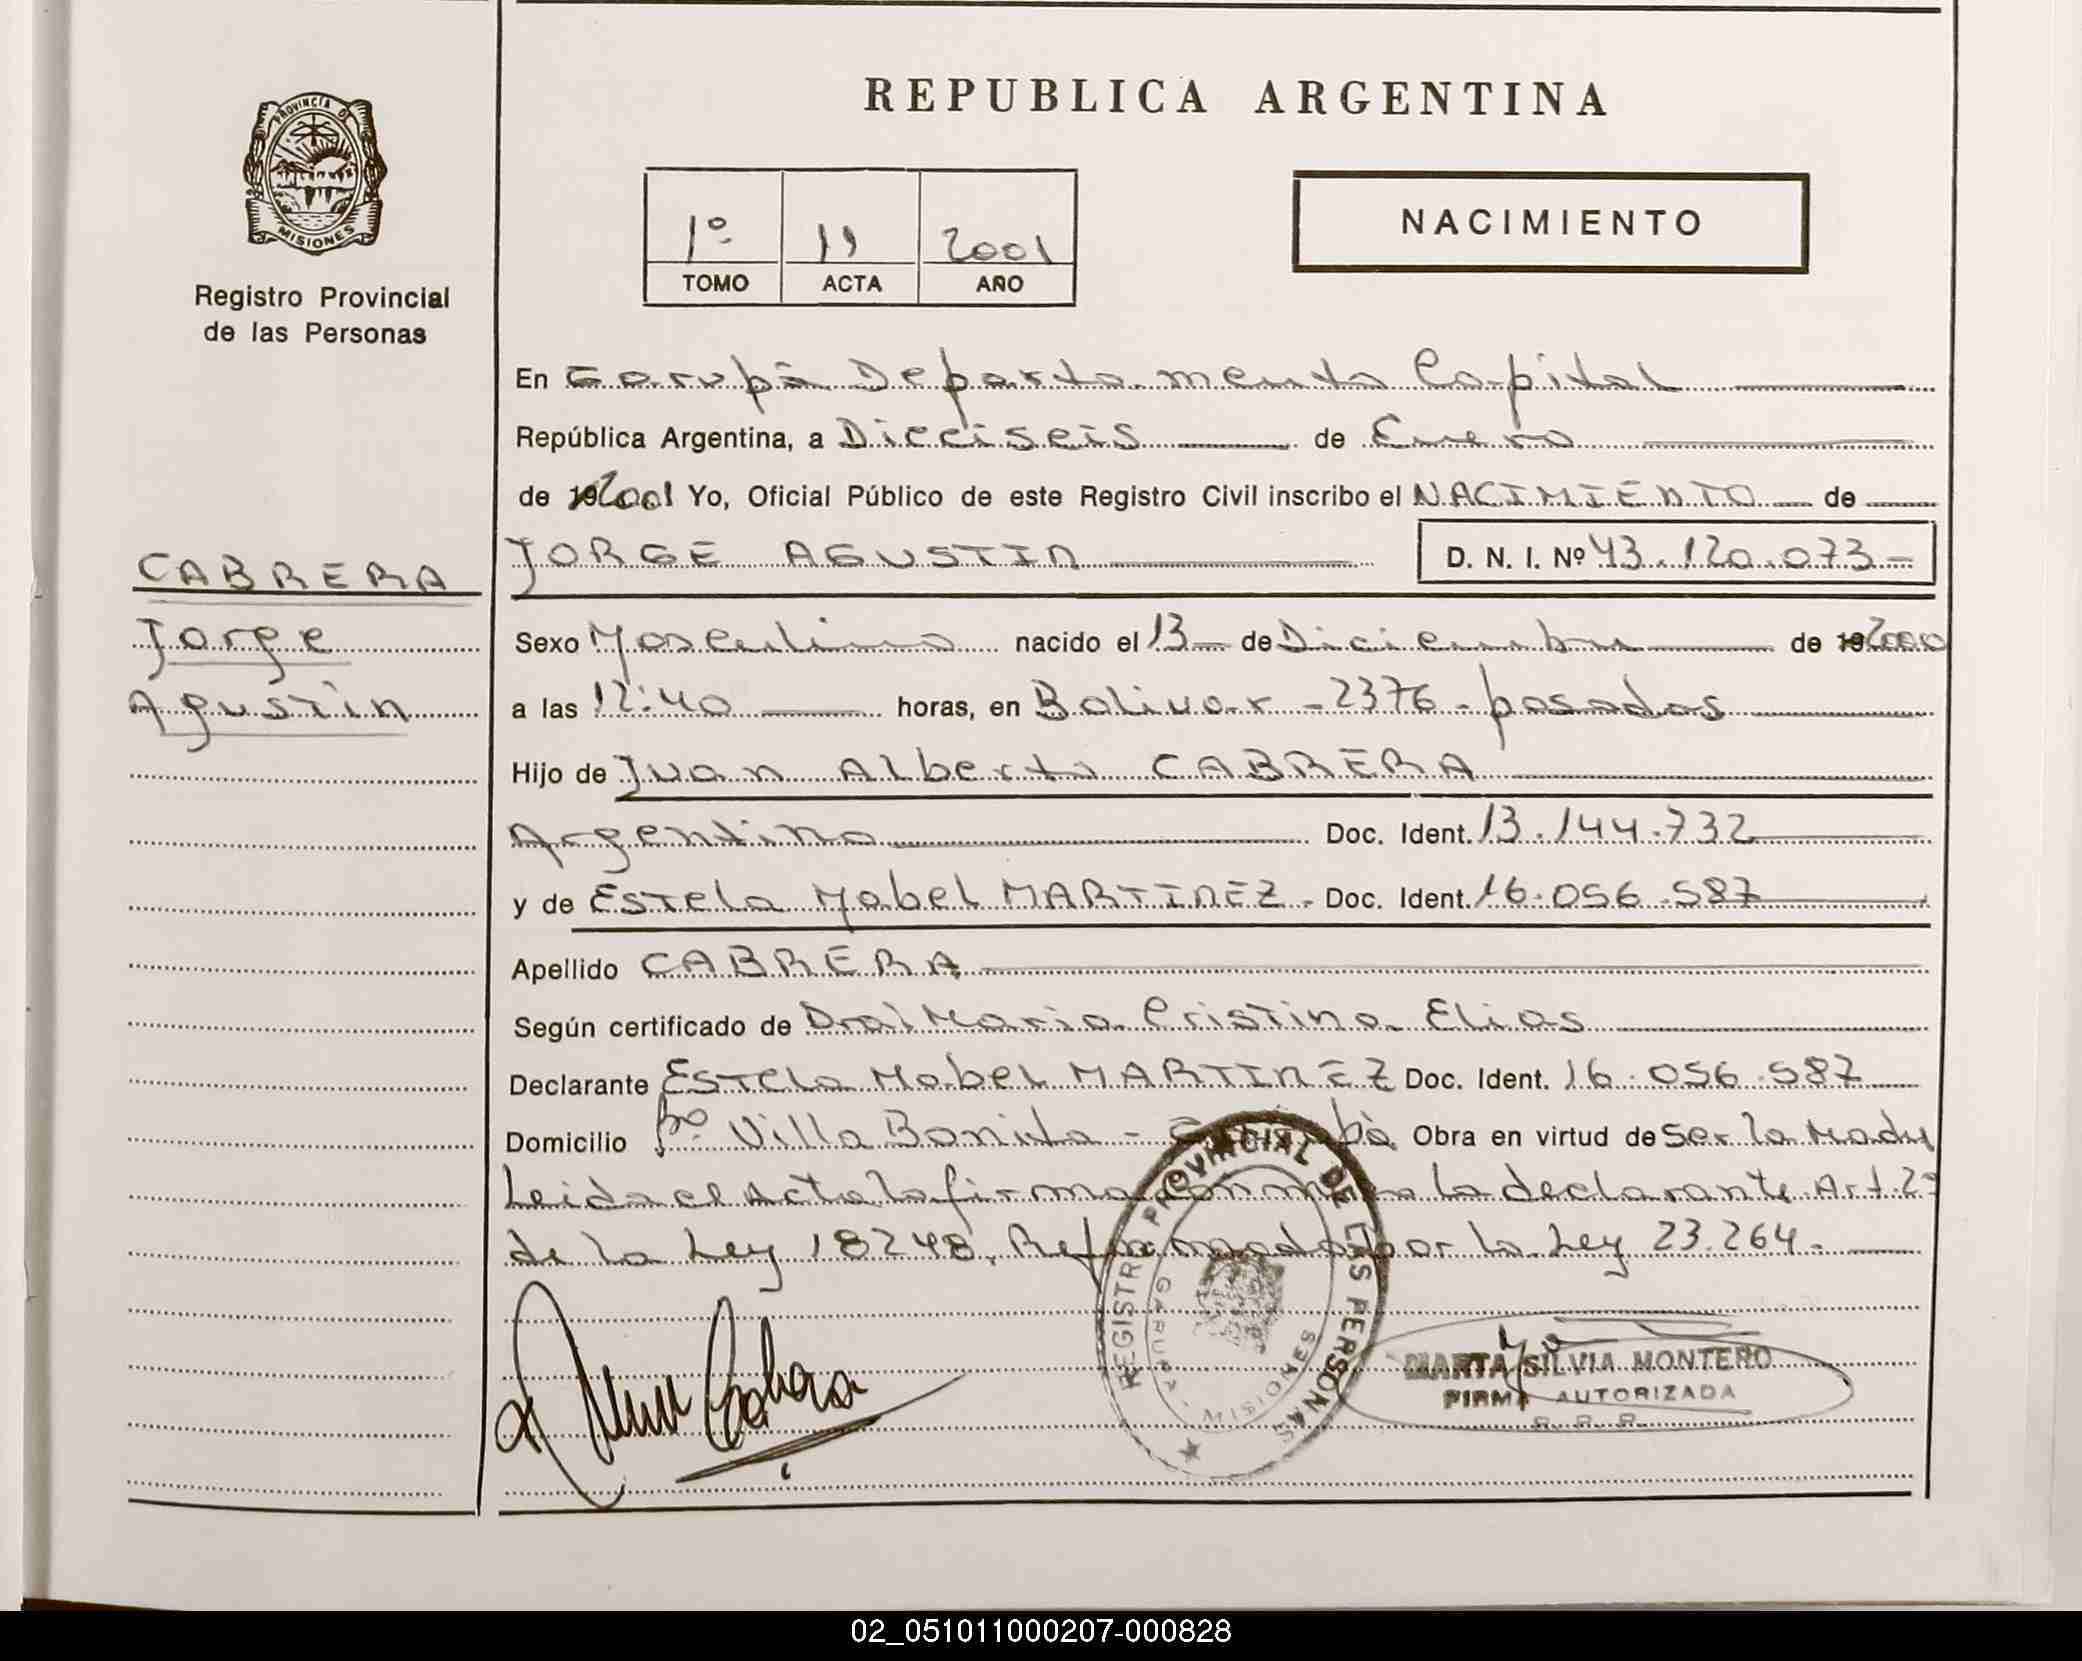 REPUBLICA ARGENTINA
PROVINCIA DE
MISIONES
Registro Provincial
de las Personas
1º 11 2001
TOMO ACTA AÑO
NACIMIENTO
En Garupá Departamento Capital
República Argentina, a Dieciseis de Enero
de 192001 Yo, Oficial Público de este Registro Civil inscribo el NACIMIENTO de
JORGE AGUSTIN D. N. I. Nº 43.120.073
CABRERA
Jorge
Agustin
Sexo Masculino nacido el 13 de Diciembre de 192000
a las 12:40 horas, en Bolivar - 2376 - posadas
Hijo de Juan Alberto CABRERA
Argentino Doc. Ident. 13.144.732
y de ESTela Mabel MARTINEZ. Doc. Ident. 16.056.587
Apellido CABRERA
Según certificado de Dra. Maria Cristina Elias
Declarante ESTela Mabel MARTINEZ Doc. Ident. 16.056.587
Domicilio Bº Villa Bonita - Garupá Obra en virtud de Ser la Madre
Leida el Acta la firma conmigo la declarante Art. 2º
de la Ley 18248. Reformada por la Ley 23.264.
REGISTRO PROVINCIAL DE LAS PERSONAS
GARUPA - MISIONES
MARTA SILVIA MONTERO
FIRMA AUTORIZADA
R. P. P.
02_051011000207-000828